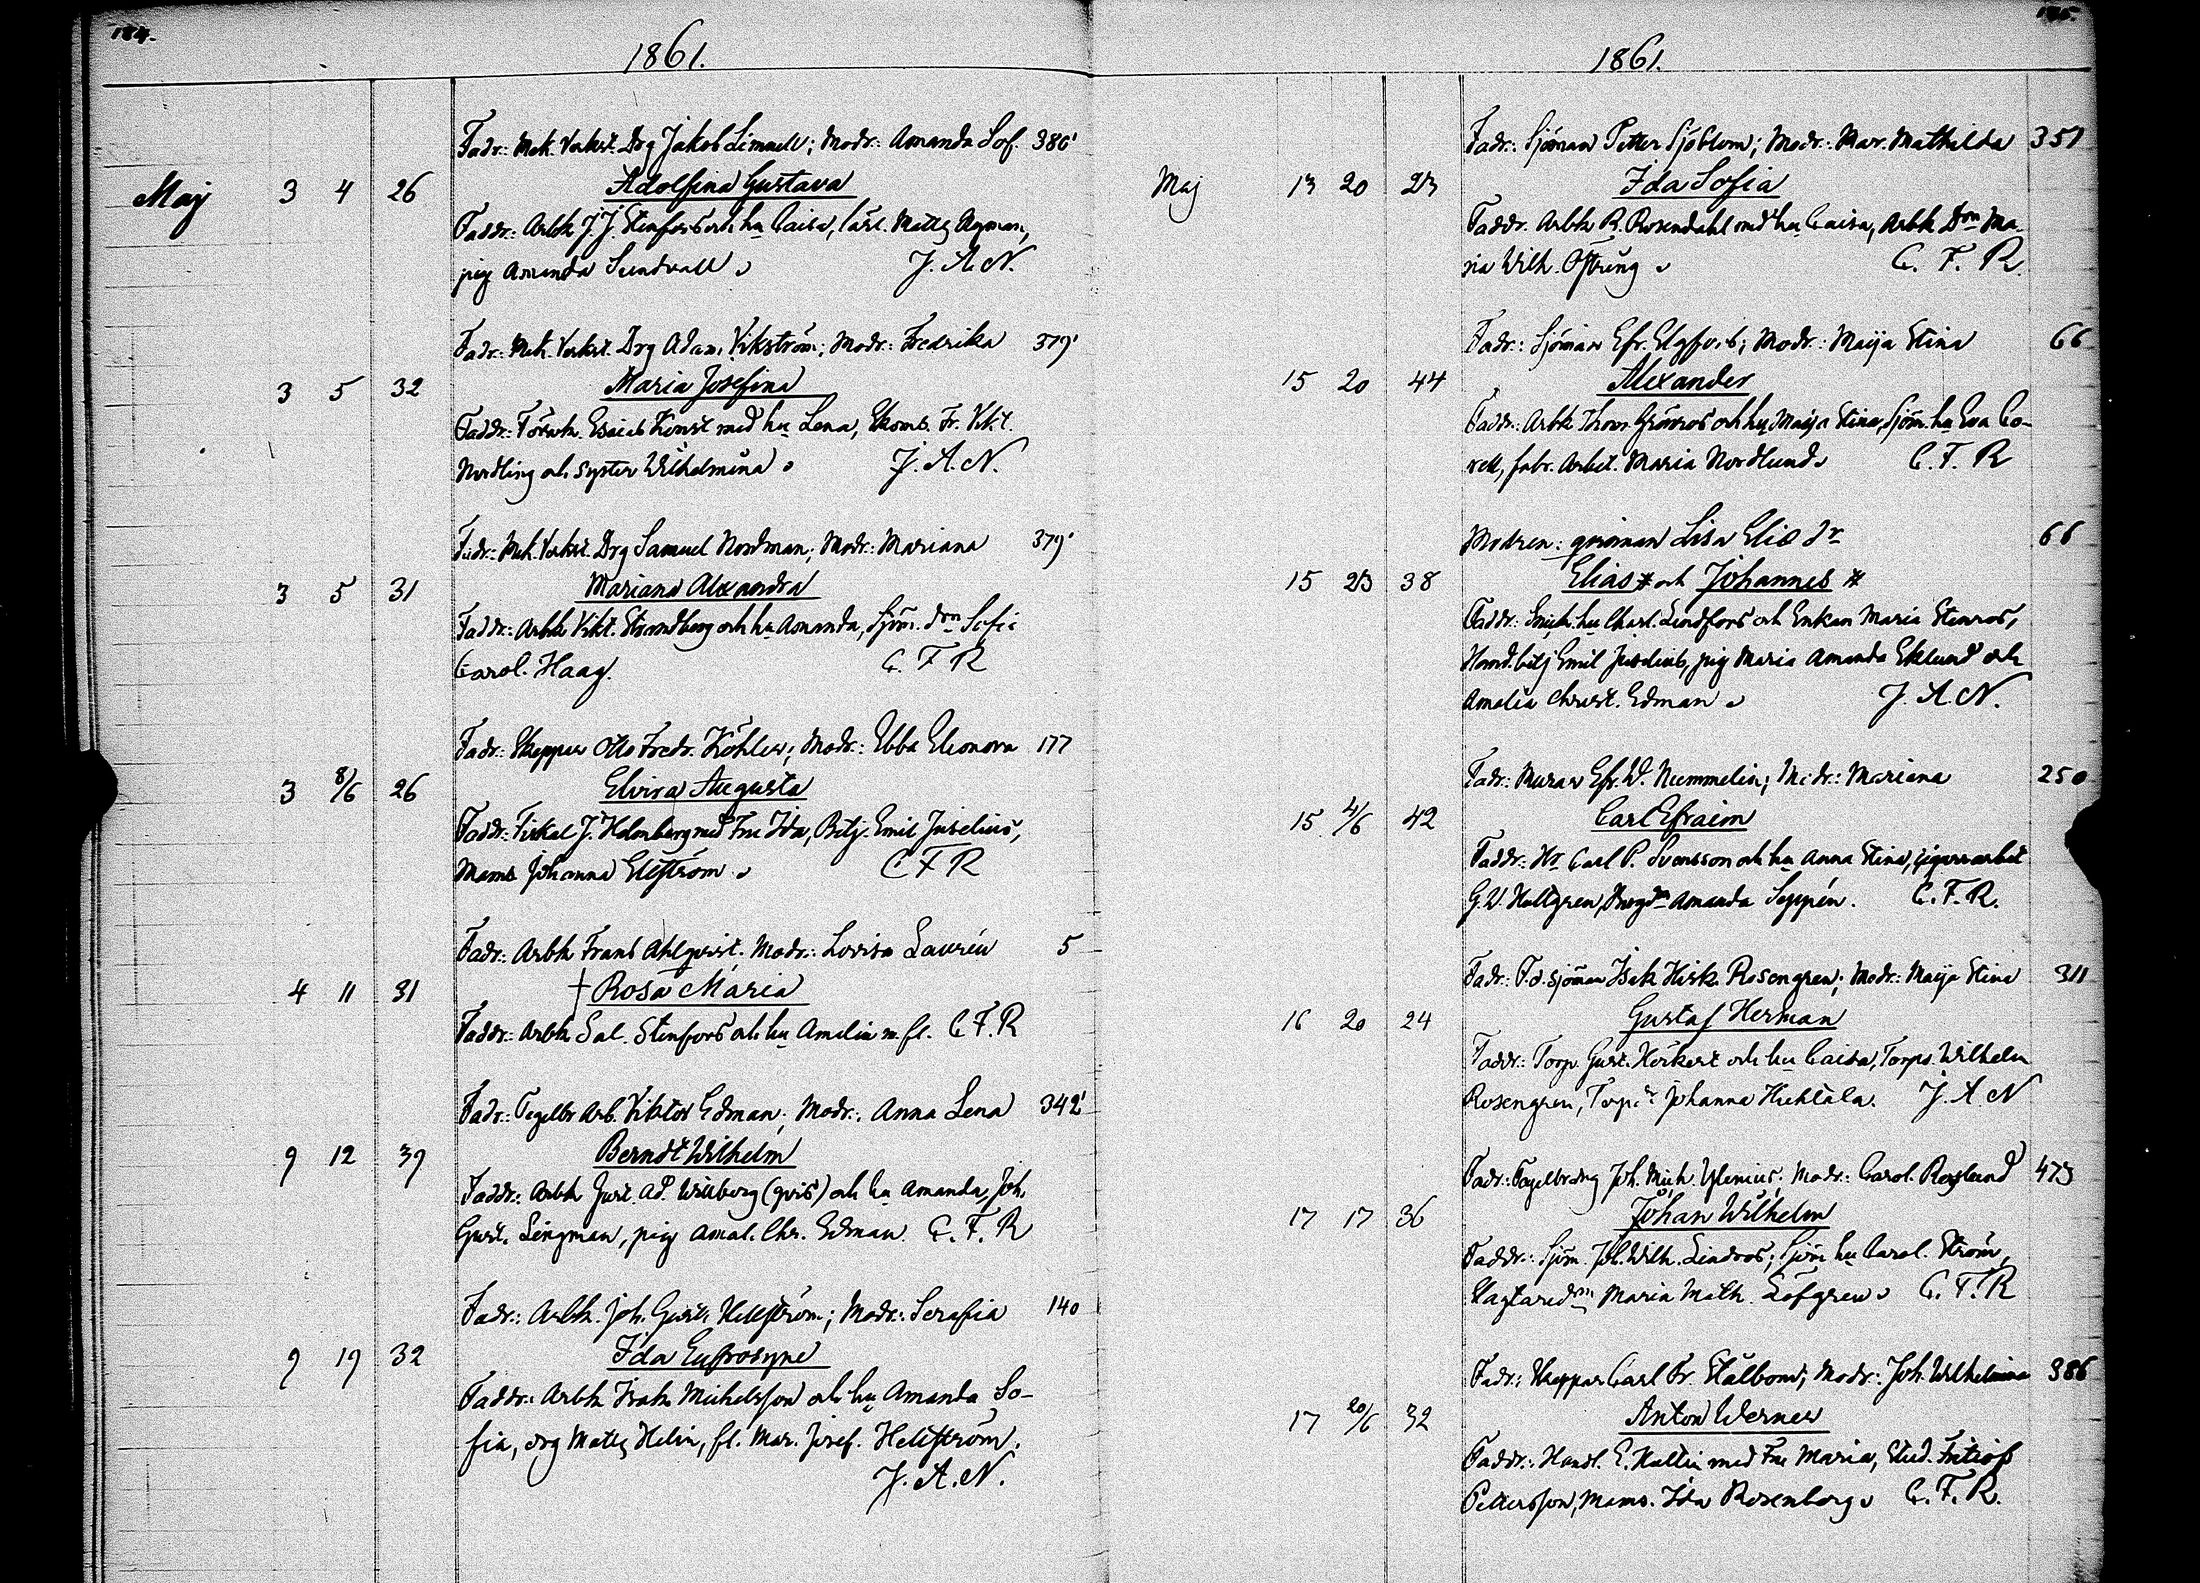 184.
1861.
Fadr: Mek. Verkst. Drg Jakob Limnell; Modr: Amanda Sof. 386'
Maij 3 4 26 Adolfina Gustava
Faddr: Arbk J. J. Stenfors och hu Caisa, Matts Nyman,
pig Amanda Sundvall J. A. N.
Fadr: Mek. Verkst. Drg Adam Vikström; Modr: Fredrika 379'
3 5 32 Maria Josefina
Faddr: Esaias Konst med hu Lena, Fr. Vikt.
Nordling och syster Wilhelmina J. A. N.
Fadr: Mek. Verkst. Drg Samuel Nordman; Modr: Mariana 379'
3 5 31 Mariana Alexandra
Faddr: Arbk Vikt. Strandberg och hu Amanda, Sjöm. dn Sofia
Carol. Haag. C. F R
Fadr: Skeppar Otto Fredr. Köhler; Modr: Ebba Eleonora 177
3 8/6 26 Elvira Augusta
Faddr: Fiskal J. Holmberg med Fru Ida, Betj. Emil Juselius,
Mams Johanna Elfström C F R
Fadr: Arbk Frans Ahlqvist. Modr: Lovisa Laurén 5
4 11 31 † Rosa Maria
Faddr: Arbk Sal. Stenfors och hu Amalia m. fl. C F. R
Fadr: Tegelbr Arb. Viktor Edman; Modr: Anna Lena 342'
9 12 39 Berndt Wilhelm
Faddr: Arbk Gust. Ad. Willberg (qvis) och hu Amanda, Joh.
Gust. Lingman, pig Amal. Chr. Edman C. F. R
Fadr: Arbk Joh. Gust. Hellström; Modr: Serafia 140
9 19 32 Ida Eufrosyne
Faddr: Arbk Isak Michelsson och hu Amanda So-
fia, drg Matts Helin, fl. Mar. Josef. Hellström.
J. A. N.
185.
1861.
Fadr: Sjöman Petter Sjöblom; Modr: Mar. Mathilda 351
Maj 13 20 23 Ida Sofia
Faddr. Arbk R. Rosendahl med hu Caisa, Arbk Don Ma-
ria Wilh. Öftring C. F. R.
Fadr: Sjöman Efr. Elgfors; Modr: Maija Stina 66
15 20 44 Alexander
Faddr: Arbk Thom. Grönros och hu Maija Stina, Sjöm. hu Eva Co-
rell, fabr. Arbet. Maria Nordlund C. F. R
Modren: qvinnan Lisa Elis dr 66
15 23 38 Elias och Johannes
Faddr: hu Charl. Lindfors och Enkan Maria Stenros,
Hand. betj Emil Juselius, pig Maria Amanda Eklund och
Amalia Christ. Edman J. A. N.
Fadr: Murar Efr. W. Nummelin; Modr: Mariana 250
15 4/6 42 Carl Efraim
Faddr: Hr Carl P. Svensson och hu Anna Stina, Cigarrarbet
G. W. Hultgren, Amanda Seppén. C. F. R.
Fadr: F. d. sjöman Isak Hisk. Rosengren; Modr: Maija Stina 311
16 20 24 Gustaf Herman
Faddr: Torp. Gust. Herkert och hu Caisa, Torps. Wilhelm
Rosengren, Torp. dr Johanna Hichtala. J. A. N
Fadr: Tegelbrdrg Joh. Mich. Ylenius; Modr: Carol. Roslund 473
17 17 36 Johan Wilhelm
Faddr: Sjöm. Joh. Wilh. Lindros; Sjöm hu Carol. Ström,
Maria Math. Löfgren C. F. R
Fadr: Skeppar Carl Fr. Stålbom; Modr: Joh. Wilhelmina 386
17 20/6 32 Anton Werner
Faddr: Handl. E. Hallin med Fru Maria, Stud. Fritiof
Pettersson, Mams. Ida Rosenberg C. F. R.